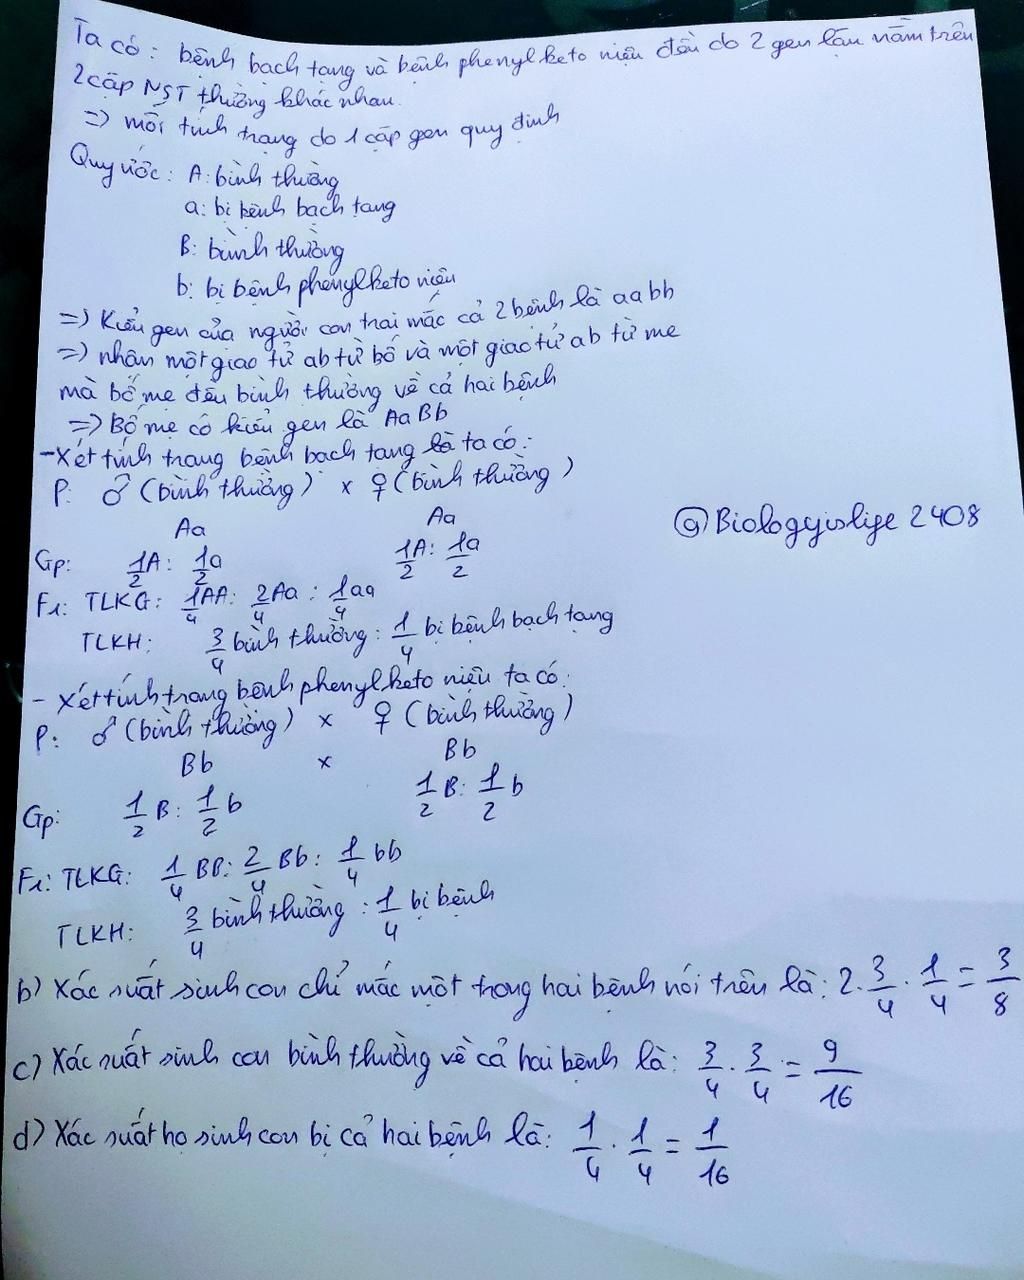 Ta có: bệnh bạch tạng và bệnh phenylketo niệu đều do 2 gen lặn nằm trên
2 cặp NST thường khác nhau.
=> mỗi tính trạng do 1 cặp gen quy định
Quy ước: A: bình thường
a: bị bệnh bạch tạng
B: bình thường
b: bị bệnh phenylketo niệu
=> Kiểu gen của người con trai mắc cả 2 bệnh là aabb
=> nhận một giao tử ab từ bố và một giao tử ab từ mẹ
mà bố mẹ đều bình thường về cả hai bệnh
=> Bố mẹ có kiểu gen là AaBb
- Xét tính trạng bệnh bạch tạng ta có:
P: ♂ (bình thường) x ♀ (bình thường)
Aa Aa
Gp: 1/2 A: 1/2 a 1/2 A: 1/2 a
F1: TLKG: 1/4 AA: 2/4 Aa: 1/4 aa
TLKH: 3/4 bình thường: 1/4 bị bệnh bạch tạng
@Biologyislife2408
- Xét tính trạng bệnh phenylketo niệu ta có:
P: ♂ (bình thường) x ♀ (bình thường)
Bb x Bb
Gp: 1/2 B: 1/2 b 1/2 B: 1/2 b
F1: TLKG: 1/4 BB: 2/4 Bb: 1/4 bb
TLKH: 3/4 bình thường: 1/4 bị bệnh
b) Xác suất sinh con chỉ mắc một trong hai bệnh nói trên là: 2. 3/4 . 1/4 = 3/8
c) Xác suất sinh con bình thường về cả hai bệnh là: 3/4 . 3/4 = 9/16
d) Xác suất họ sinh con bị cả hai bệnh là: 1/4 . 1/4 = 1/16